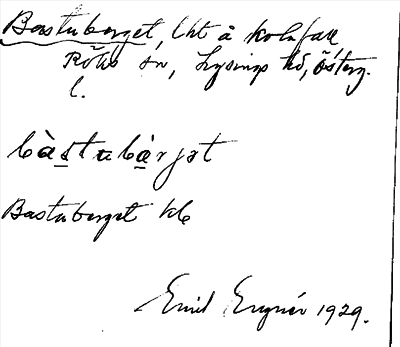 Bastuberget, lht å Kolnfall
Röks sn, Lysings hd, Österg.
l.
bàstubàrjət
Bastuberget kle
Emil Engnér 1929.